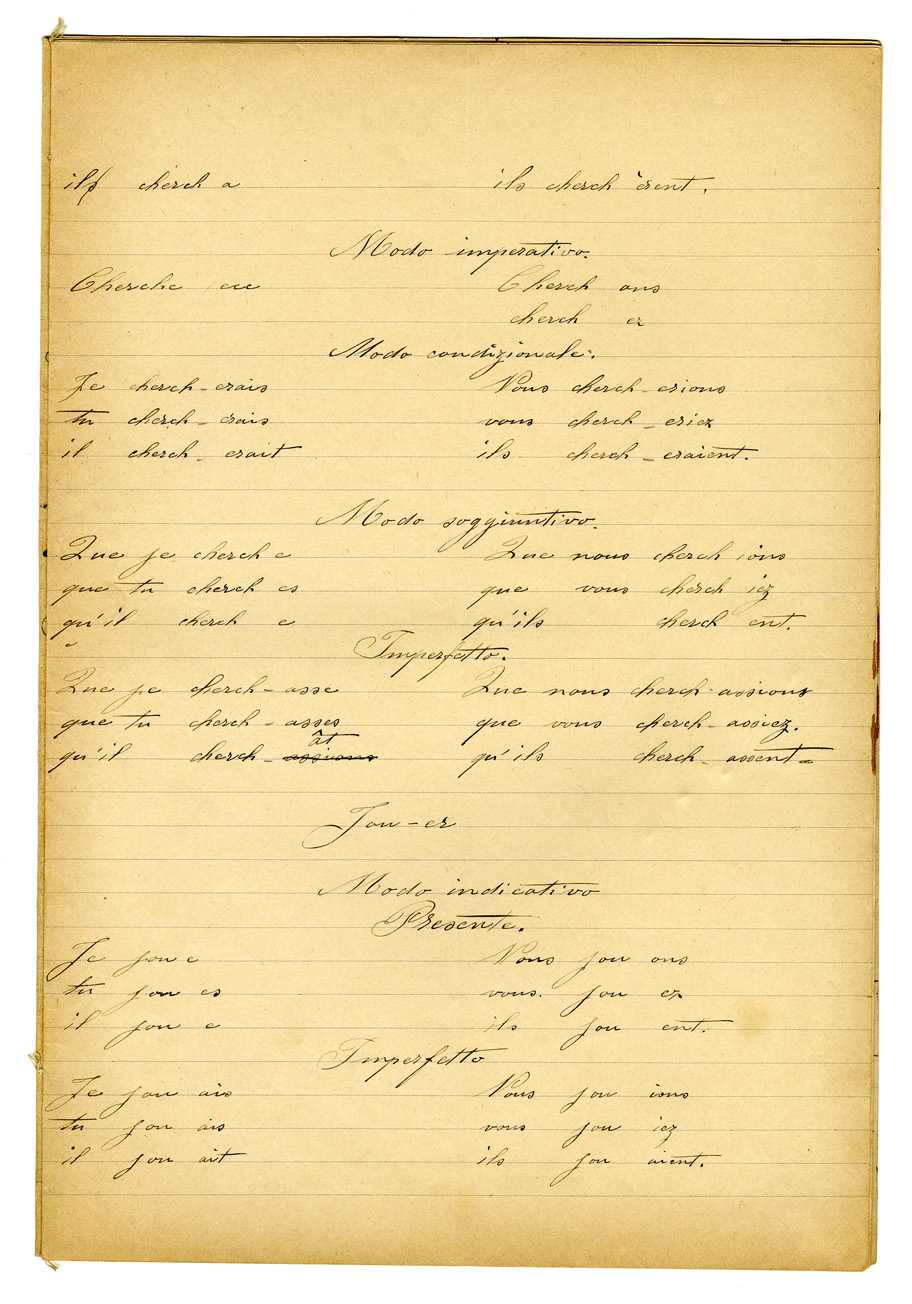 il cherch a ils cherch èrent.
Modo imperativo.
Cherche Cherch ons
cherch ez
Modo condizionale.
Je cherch-erais Nous cherch-erions
tu cherch-erais vous cherch-eriez
il cherch-erait ils cherch-eraient.
Modo soggiuntivo.
Que je cherch e Que nous cherch ions
que tu cherch es que vous cherch iez
qu'il cherch e qu'ils cherch ent.
Imperfetto.
Que je cherch-asse Que nous cherch-assions
que tu cherch-asses que vous cherch-assiez.
qu'il cherch-assions ât qu'ils cherch-assent-
Jou-er
Modo indicativo
Presente.
Je jou e Nous jou ons
tu jou es vous. jou ez
il jou e ils jou ent.
Imperfetto
Je jou ais Nous jou ions
tu jou ais vous jou iez
il jou ait ils jou aient.